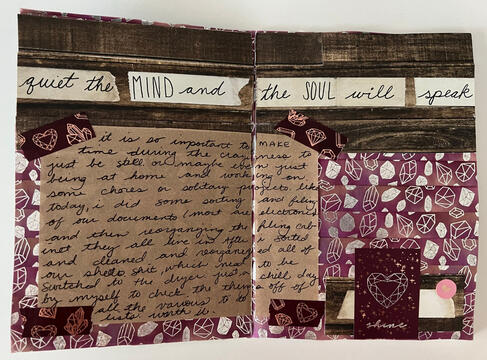 quiet the MIND and the SOUL will speak
it is so important to MAKE
time during the craziness to
just be still or maybe even just
being at home and working on
some chores or solitary projects. like
today, i did some sorting and filing
of our documents (most are electronic
and then reorganizing the filing cab-
inet they all live in. After i sorted
and cleaned and reorganized all of
our shit, which to be
switched to the dryer just a chill day
by myself to check the things off of
all the various to do
lists. worth it.
shine